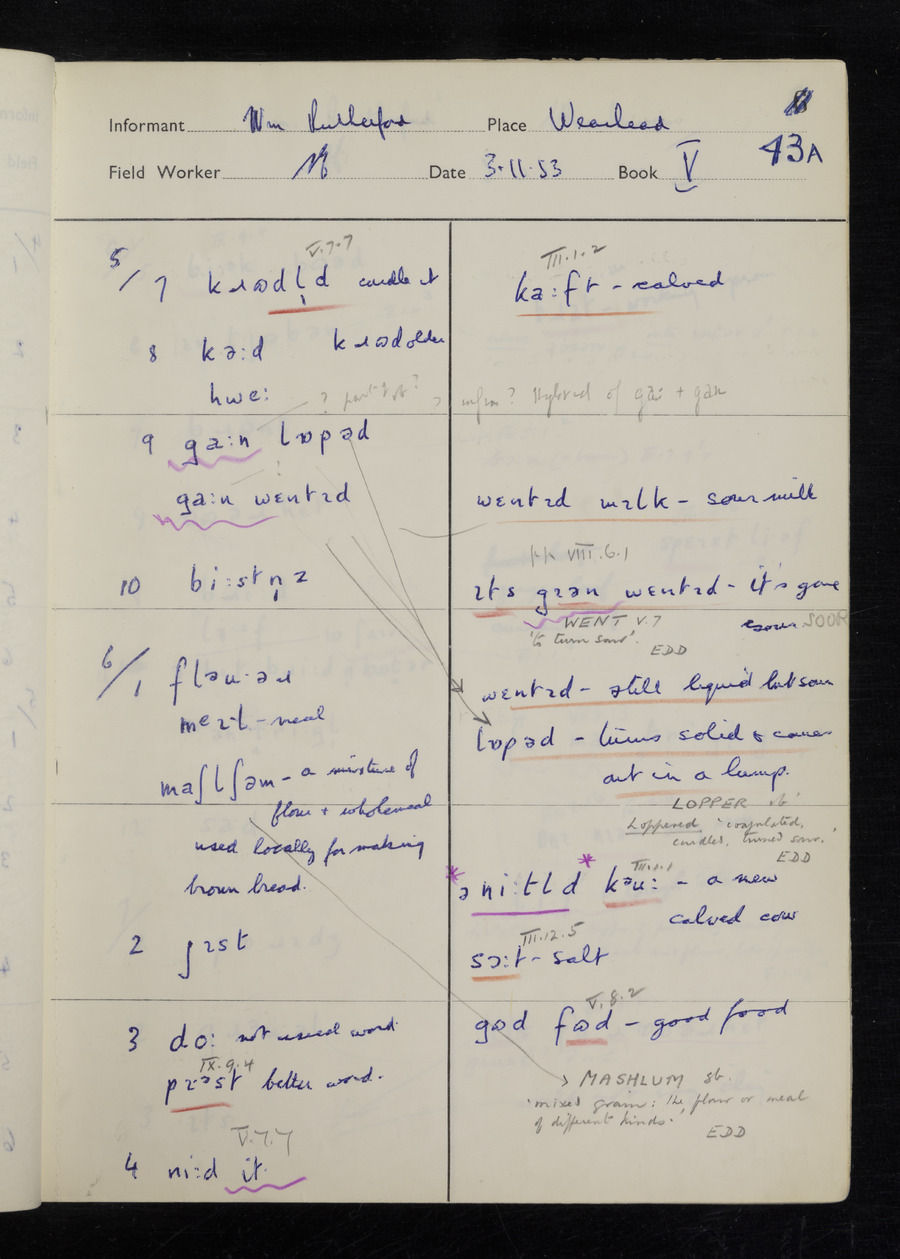 Informant Wm Rutherford Place Wearhead
43A
Field Worker Date 3.11.53 Book V
V.7.7
5/7 kɹʊdl̩d curdle it
8 kɔ:d kɹʊd older
hwe:
? part of ? ? infm? Hybrid of ga: + gan
9 ga:n lɒpəd
ga:n wentɪd
10 bi:stn̩z
6/1 flaʊ·əɹ
meɪl - meal
maʃlʃəm - a mixture of
flour + wholemeal
used locally for making
brown bread.
2 jɪst
3 do: not usual word
IX.9.4
pɪəst better word.
V.7.7
4 ni:d it
III.1.2
ka:ft - calved
wentɪd mɪlk - sour milk
VIII.6.1
ɪts gɪən wentɪd - it's gone
sour
WENT V.7
'to turn sour'.
EDD
wentɪd - still liquid but sour
lɒpəd - turns solid & comes
out in a lump.
LOPPER vb
Loppered 'coagulated,
curdled, turned sour.'
EDD
III.1.1
ə ni:tld kəu: - a new
calved cow
III.12.5
sɔ:t - salt
V.8.2
gʊd fʊd - good food
MASHLUM sb.
'mixed grain: the flour or meal
of different kinds.'
EDD